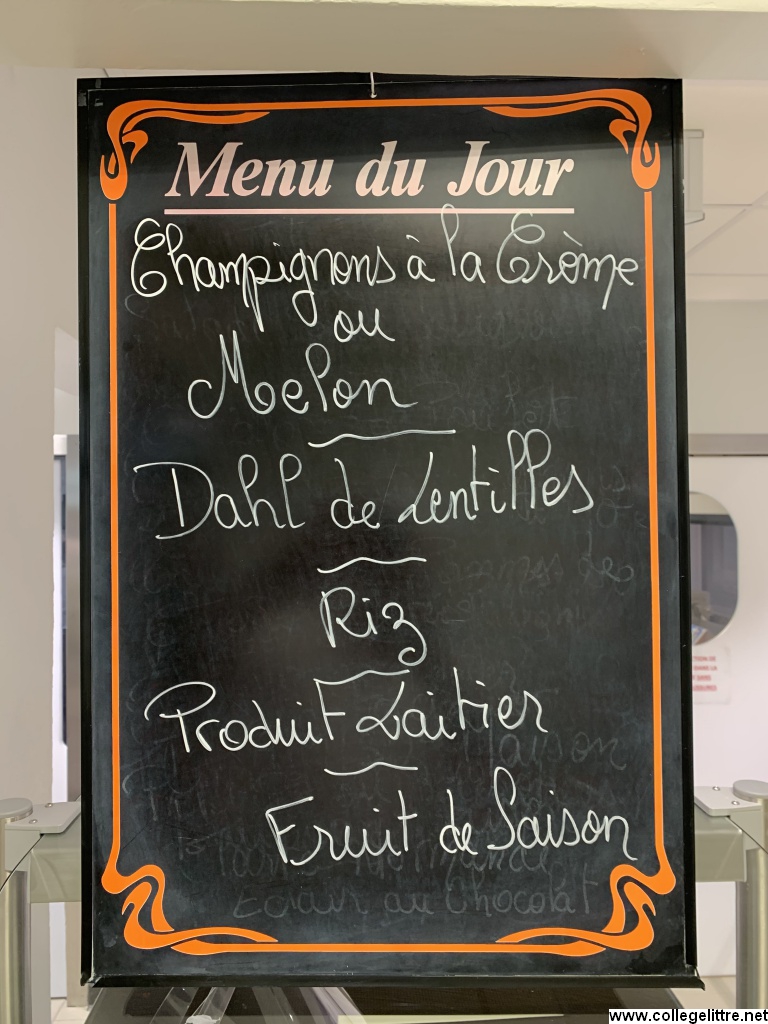 Menu du Jour
Champignons à la Crème
ou
Melon
Dahl de Lentilles
Riz
Produit Laitier
Fruit de Saison
Eclair au Chocolat
www.collegelittre.net